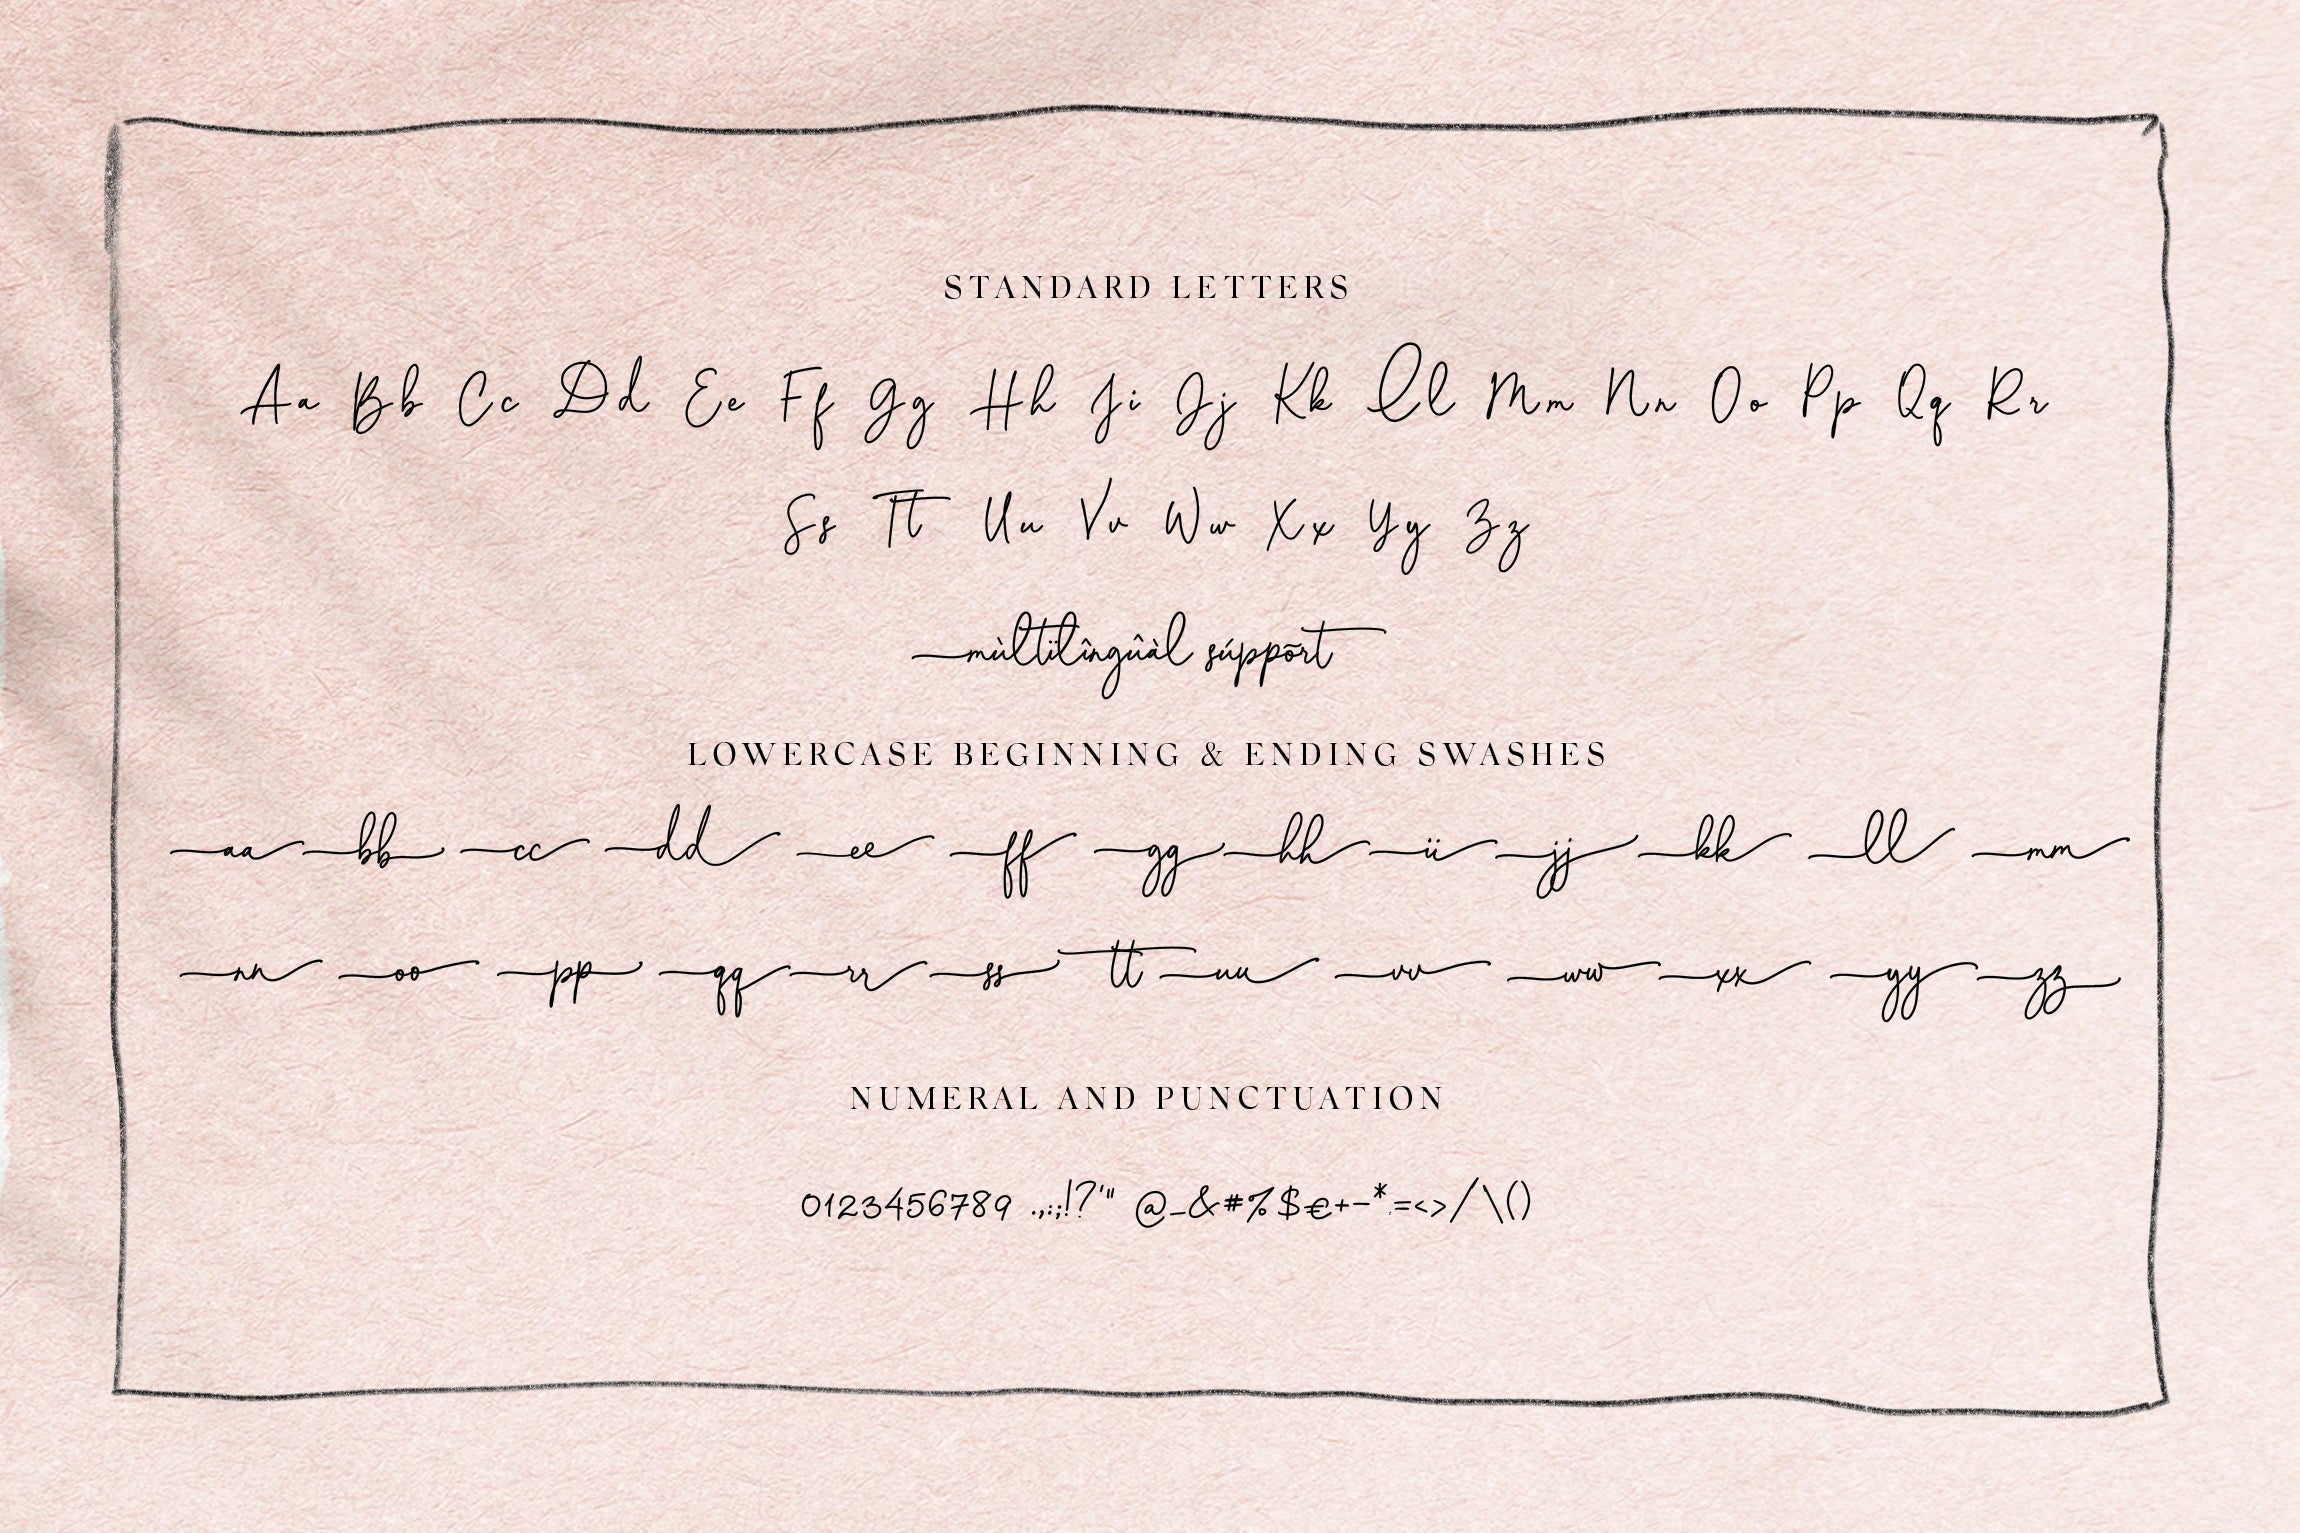 STANDARD LETTERS
Aa Bb Cc Dd Ee Ff Gg Hh Ii Jj Kk Ll Mm Nn Oo Pp Qq Rr
Ss Tt Uu Vv Ww Xx Yy Zz
mùltïlîngûàl súppõrt
LOWERCASE BEGINNING & ENDING SWASHES
aa bb cc dd ee ff gg hh ii jj kk ll mm
nn oo pp qq rr ss tt uu vv ww xx yy zz
NUMERAL AND PUNCTUATION
0123456789 .,:;!?'" @_&#%$€+-*=<>/\()